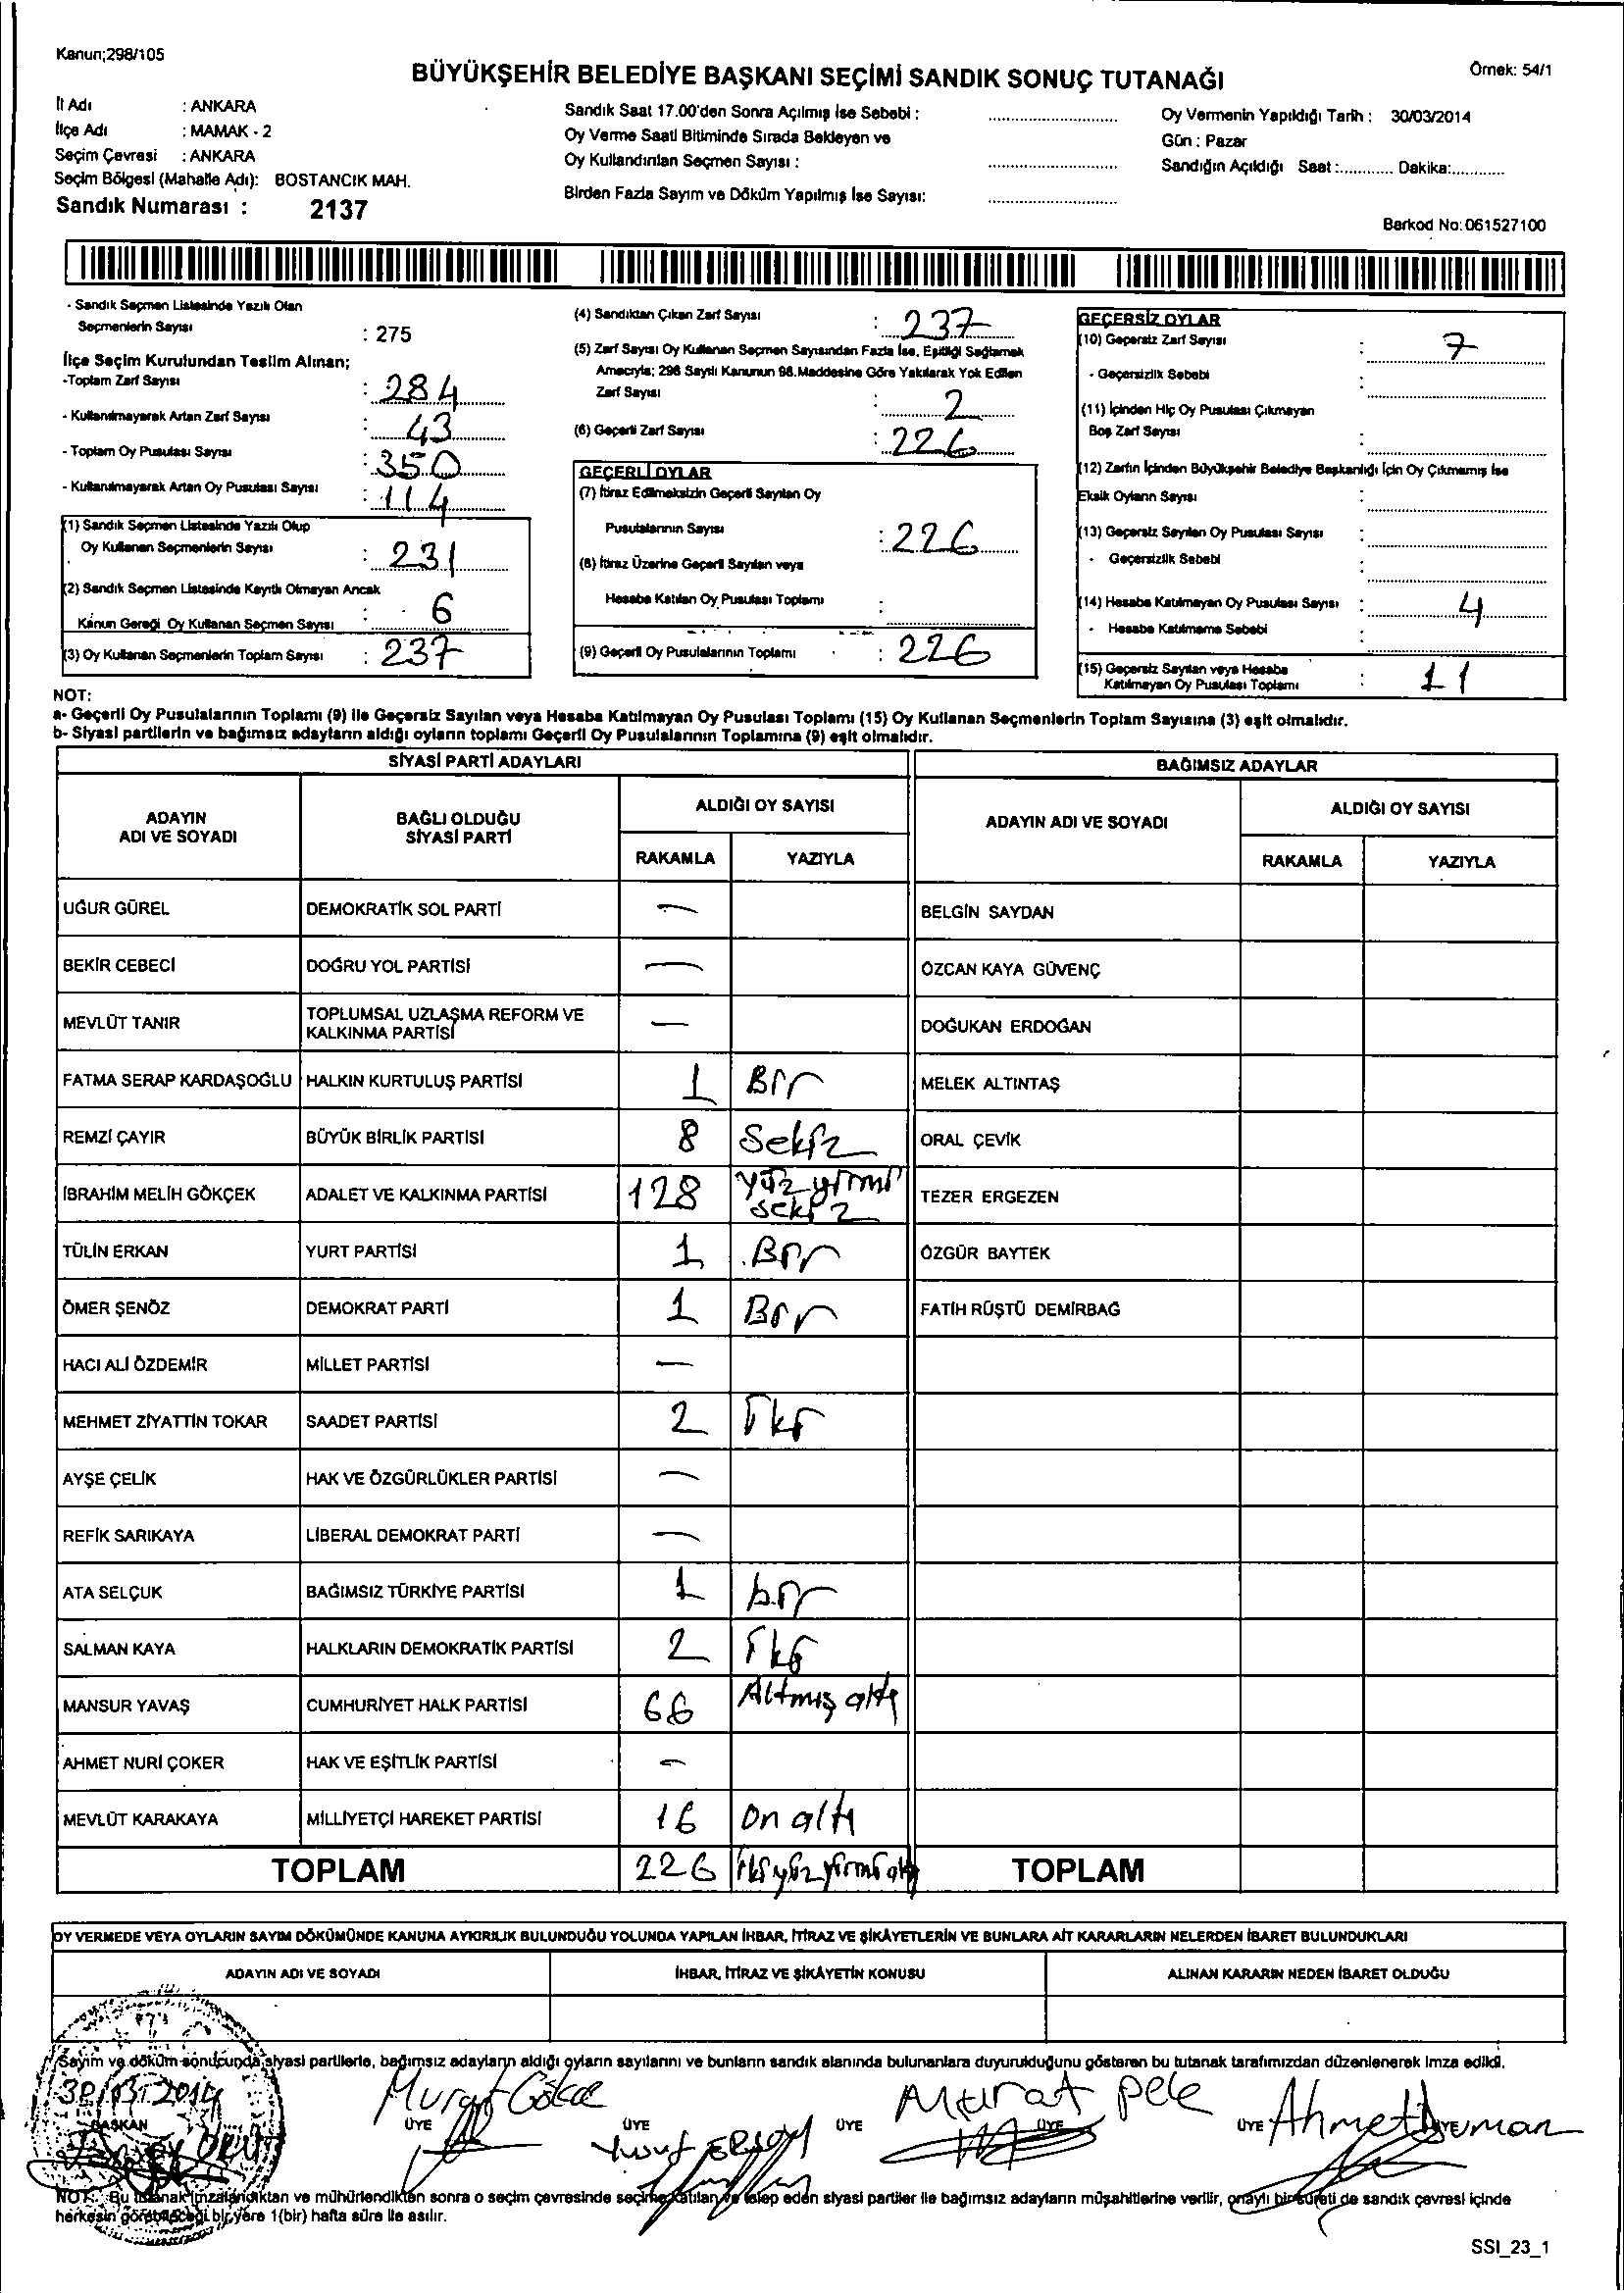 Kanun;298/105
BÜYÜKŞEHİR BELEDİYE BAŞKANI SEÇİMİ SANDIK SONUÇ TUTANAĞI
Örnek: 54/1
İl Adı : ANKARA
İlçe Adı : MAMAK - 2
Seçim Çevresi : ANKARA
Seçim Bölgesi (Mahalle Adı): BOSTANCIK MAH.
Sandık Numarası : 2137
Sandık Saat 17.00'den Sonra Açılmış İse Sebebi : ..........
Oy Verme Saati Bitiminde Sırada Bekleyen ve
Oy Kullandırılan Seçmen Sayısı : ..........
Birden Fazla Sayım ve Döküm Yapılmış İse Sayısı: ..........
Oy Vermenin Yapıldığı Tarih : 30/03/2014
Gün : Pazar
Sandığın Açıldığı Saat :............ Dakika:............
Barkod No: 061527100
- Sandık Seçmen Listesinde Yazılı Olan
Seçmenlerin Sayısı : 275
İlçe Seçim Kurulundan Teslim Alınan;
-Toplam Zarf Sayısı : 284
- Kullanılmayarak Artan Zarf Sayısı : 43
- Toplam Oy Pusulası Sayısı : 350
- Kullanılmayarak Artan Oy Pusulası Sayısı : 114
(1) Sandık Seçmen Listesinde Yazılı Olup
Oy Kullanan Seçmenlerin Sayısı : 231
(2) Sandık Seçmen Listesinde Kayıtlı Olmayan Ancak
Kanun Gereği Oy Kullanan Seçmen Sayısı : 6
(3) Oy Kullanan Seçmenlerin Toplam Sayısı : 237
(4) Sandıktan Çıkan Zarf Sayısı : 237
(5) Zarf Sayısı Oy Kullanan Seçmen Sayısından Fazla İse, Eşitliği Sağlamak
Amacıyla; 298 Sayılı Kanunun 98.Maddesine Göre Yakılarak Yok Edilen
Zarf Sayısı : 2
(6) Geçerli Zarf Sayısı : 226
GEÇERLİ OYLAR
(7) İtiraz Edilmeksizin Geçerli Sayılan Oy
Pusulalarının Sayısı : 226
(8) İtiraz Üzerine Geçerli Sayılan veya
Hesaba Katılan Oy Pusulası Toplamı :
(9) Geçerli Oy Pusulalarının Toplamı : 226
GEÇERSİZ OYLAR
(10) Geçersiz Zarf Sayısı : 7
- Geçersizlik Sebebi :
(11) İçinden Hiç Oy Pusulası Çıkmayan
Boş Zarf Sayısı :
(12) Zarfın İçinden Büyükşehir Belediye Başkanlığı İçin Oy Çıkmamış İse
Eksik Oyların Sayısı :
(13) Geçersiz Sayılan Oy Pusulası Sayısı :
- Geçersizlik Sebebi :
(14) Hesaba Katılmayan Oy Pusulası Sayısı : 4
- Hesaba Katılmama Sebebi :
(15) Geçersiz Sayılan veya Hesaba
Katılmayan Oy Pusulası Toplamı : 11
NOT:
a- Geçerli Oy Pusulalarının Toplamı (9) ile Geçersiz Sayılan veya Hesaba Katılmayan Oy Pusulası Toplamı (15) Oy Kullanan Seçmenlerin Toplam Sayısına (3) eşit olmalıdır.
b- Siyasi partilerin ve bağımsız adayların aldığı oyların toplamı Geçerli Oy Pusulalarının Toplamına (9) eşit olmalıdır.
SİYASİ PARTİ ADAYLARI
BAĞIMSIZ ADAYLAR
ADAYIN ADI VE SOYADI
BAĞLI OLDUĞU SİYASİ PARTİ
ALDIĞI OY SAYISI
RAKAMLA YAZIYLA
ADAYIN ADI VE SOYADI
ALDIĞI OY SAYISI
RAKAMLA YAZIYLA
UĞUR GÜREL DEMOKRATİK SOL PARTİ — BELGİN SAYDAN
BEKİR CEBECİ DOĞRU YOL PARTİSİ — ÖZCAN KAYA GÜVENÇ
MEVLÜT TANIR TOPLUMSAL UZLAŞMA REFORM VE KALKINMA PARTİSİ — DOĞUKAN ERDOĞAN
FATMA SERAP KARDAŞOĞLU HALKIN KURTULUŞ PARTİSİ 1 Bir MELEK ALTINTAŞ
REMZİ ÇAYIR BÜYÜK BİRLİK PARTİSİ 8 Sekiz ORAL ÇEVİK
İBRAHİM MELİH GÖKÇEK ADALET VE KALKINMA PARTİSİ 128 Yüz yirmi sekiz TEZER ERGEZEN
TÜLİN ERKAN YURT PARTİSİ 1 Bir ÖZGÜR BAYTEK
ÖMER ŞENÖZ DEMOKRAT PARTİ 1 Bir FATİH RÜŞTÜ DEMİRBAĞ
HACI ALİ ÖZDEMİR MİLLET PARTİSİ —
MEHMET ZİYATTİN TOKAR SAADET PARTİSİ 2 İki
AYŞE ÇELİK HAK VE ÖZGÜRLÜKLER PARTİSİ —
REFİK SARIKAYA LİBERAL DEMOKRAT PARTİ —
ATA SELÇUK BAĞIMSIZ TÜRKİYE PARTİSİ 1 bir
SALMAN KAYA HALKLARIN DEMOKRATİK PARTİSİ 2 İki
MANSUR YAVAŞ CUMHURİYET HALK PARTİSİ 66 Altmış altı
AHMET NURİ ÇOKER HAK VE EŞİTLİK PARTİSİ —
MEVLÜT KARAKAYA MİLLİYETÇİ HAREKET PARTİSİ 16 On altı
TOPLAM 226 İkiyüz yirmi altı TOPLAM
OY VERMEDE VEYA OYLARIN SAYIM DÖKÜMÜNDE KANUNA AYKIRILIK BULUNDUĞU YOLUNDA YAPILAN İHBAR, İTİRAZ VE ŞİKÂYETLERİN VE BUNLARA AİT KARARLARIN NELERDEN İBARET BULUNDUKLARI
ADAYIN ADI VE SOYADI İHBAR, İTİRAZ VE ŞİKÂYETİN KONUSU ALINAN KARARIN NEDEN İBARET OLDUĞU
Sayım ve döküm sonucunda siyasi partilerle, bağımsız adayların aldığı oyların sayılarını ve bunların sandık alanında bulunanlara duyurulduğunu gösteren bu tutanak tarafımızdan düzenlenerek imza edildi.
30/03/2014
BAŞKAN
Murat Gökce
ÜYE
ÜYE
Yusuf ERSOY
ÜYE
Murat Pele
ÜYE
ÜYE
Ahmet Duman
NOT: Bu tutanak imzalandıktan ve mühürlendikten sonra o seçim çevresinde seçime katılan ve talep eden siyasi partiler ile bağımsız adayların müşahitlerine verilir, onaylı bir sureti de sandık çevresi içinde
herkesin görebileceği bir yere 1(bir) hafta süre ile asılır.
SSI_23_1